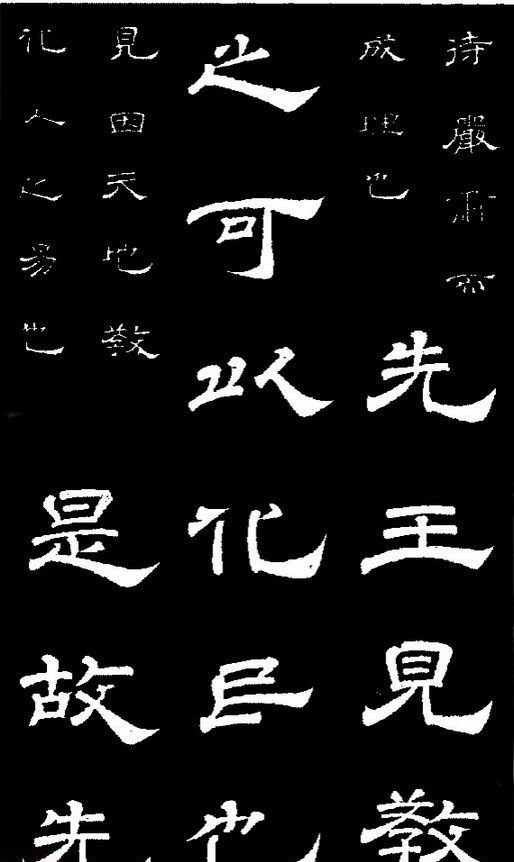 待嚴肅而
成理也
先王見教
之可以化民也
見因天地教
化人之易也
是故先